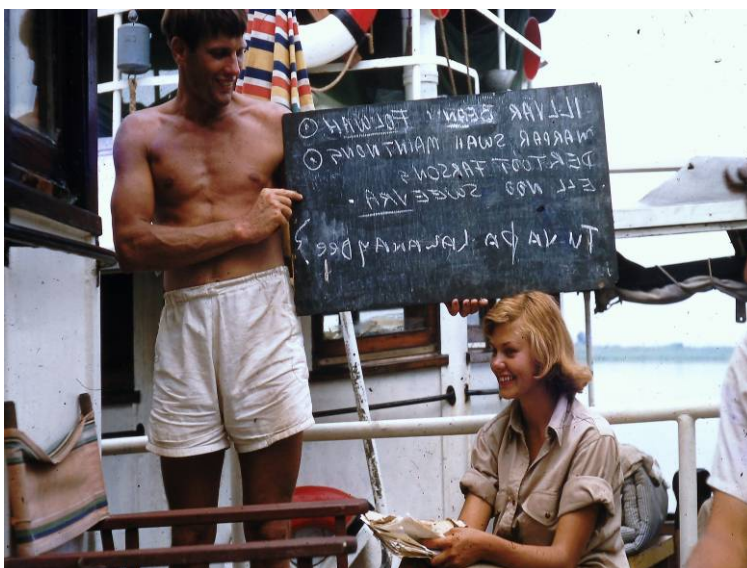 ILLVAR BEAN' FOLWAH ①
MARPAR SWAH MAINTNONG ②
DERTOOT FARSONG
ELL NOO SWEEVRA.
TU VA PA LAWANAYDEE?